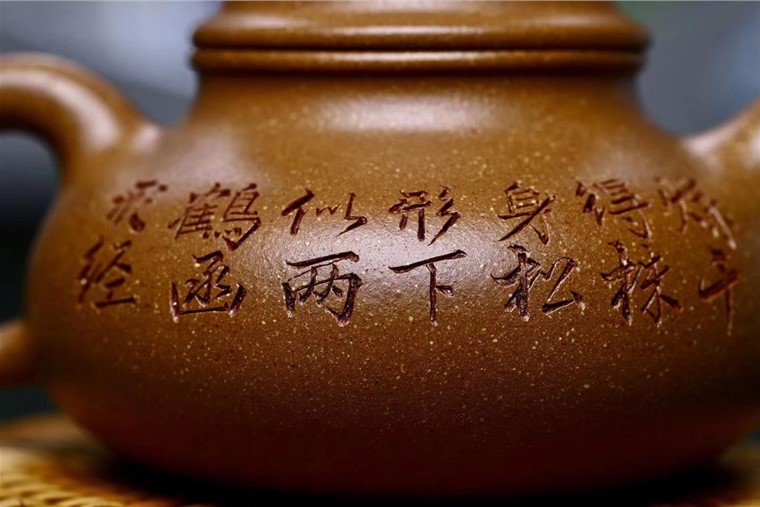 炼得身形似鹤形
千株松下两函经